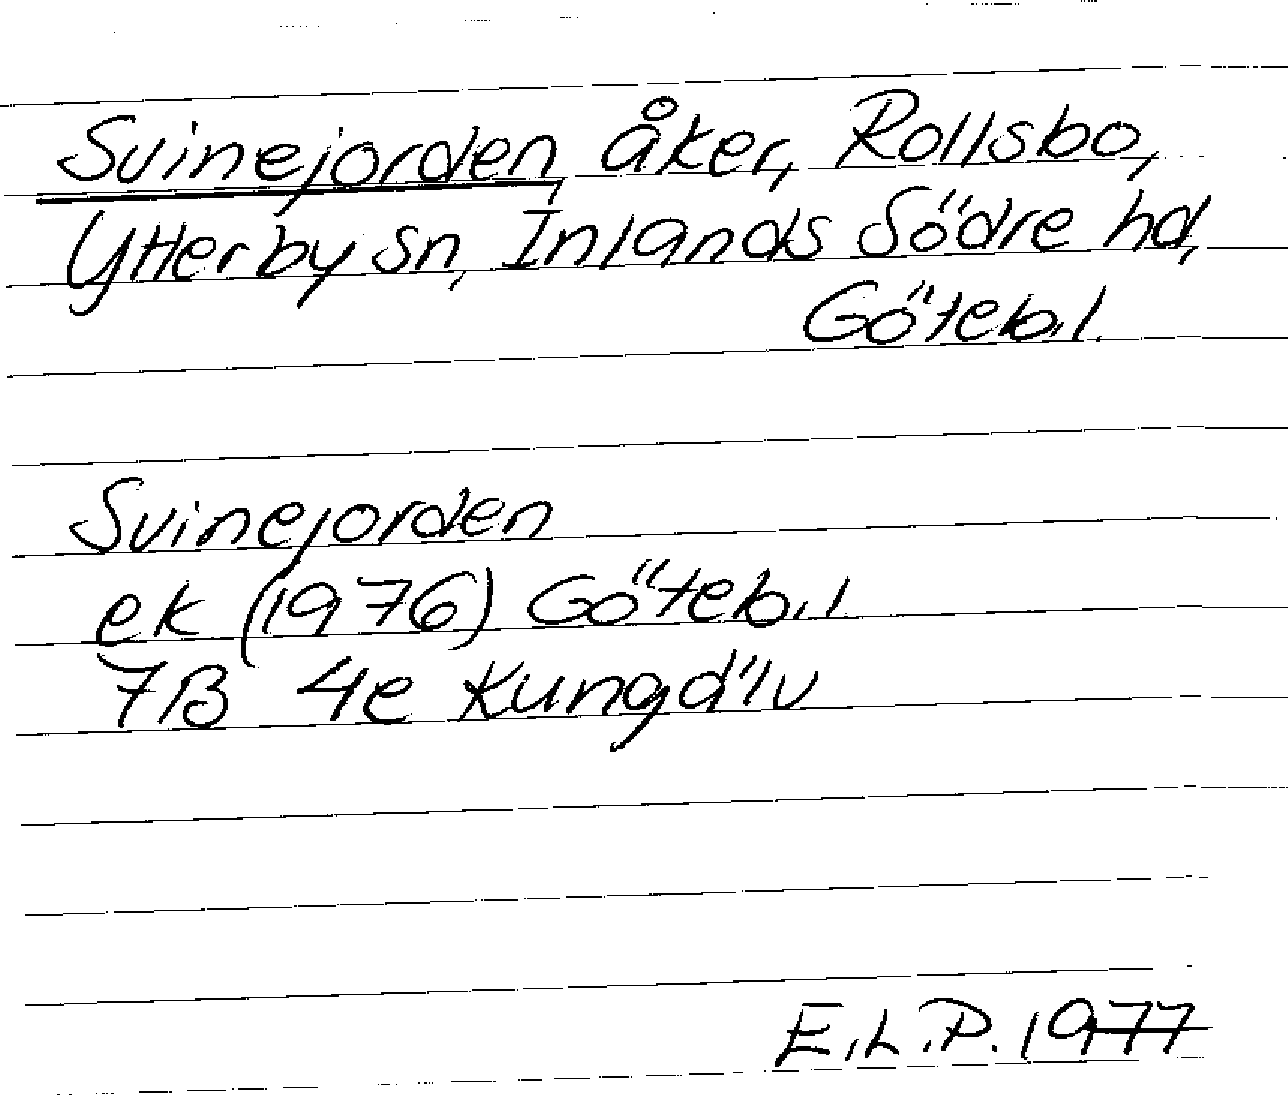 Svinejorden, åker, Rollsbo,
Ytterby sn, Inlands Södre hd,
Göteb.l.
Svinejorden
ek (1976) Göteb.l
7B 4e Kungälv
E.L.P. 1977